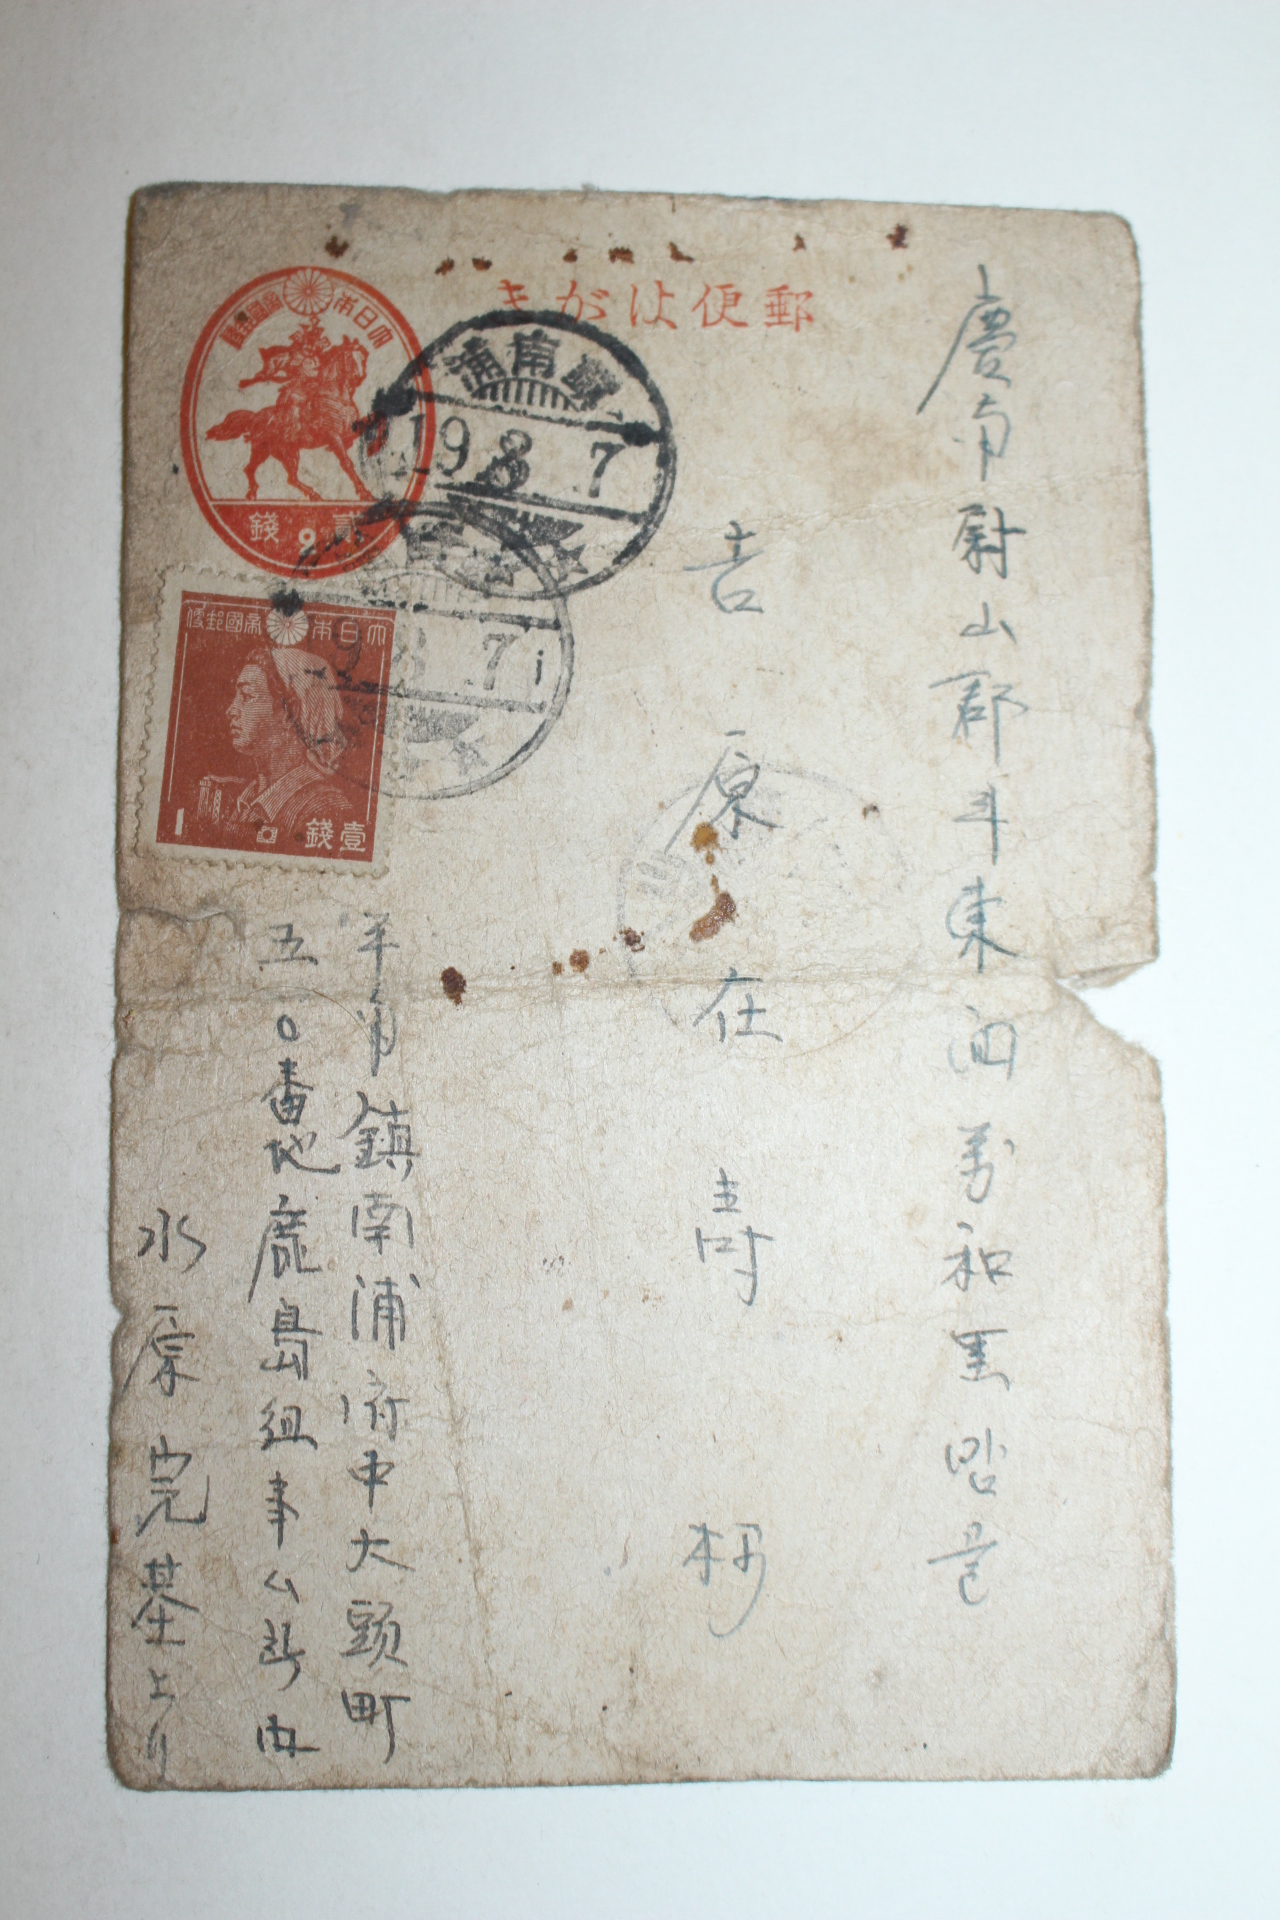 郵便はがき
大日本帝國郵便
貳錢
2
鎮南浦
19.8.7
大日本帝國郵便
1
壹錢
9.8.7
慶南尉山郡斗東面万和里맘물
吉原在壽
平南鎮南浦府中大頭町
五〇番地鹿島組事ム所内
水原完基より